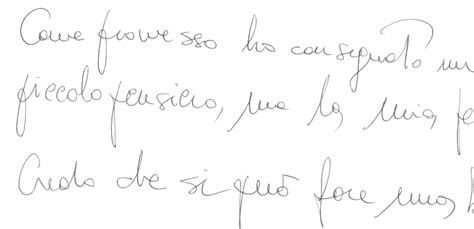 Come promesso ho consegnato un
piccolo pensiero, ma la mia
Credo che si può fare una